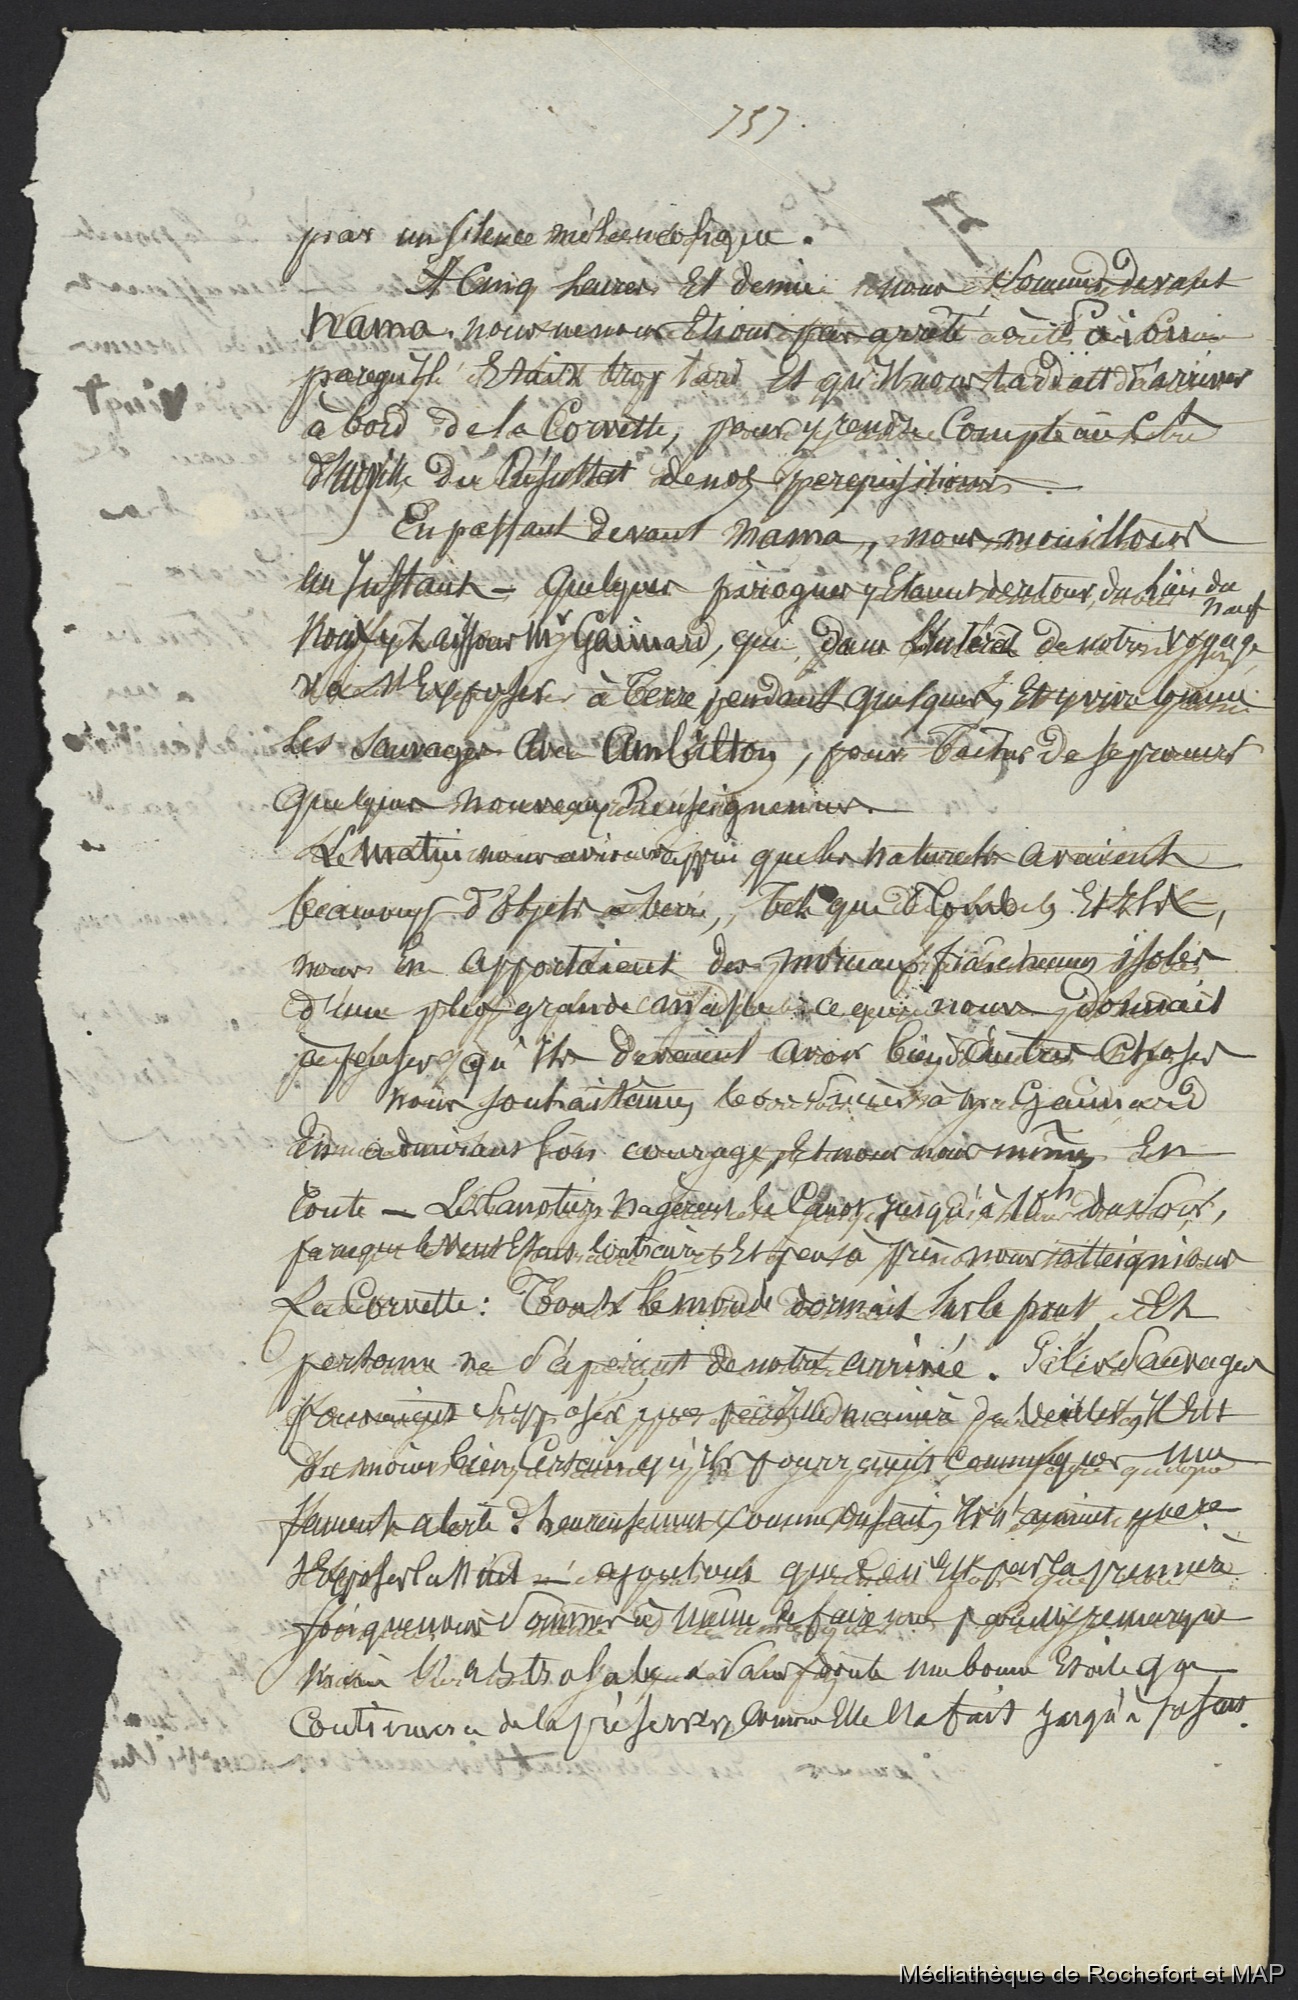 757.
par un silence mélancolique.
A Cinq heures Et demie nous Sommes devant
Nama. nous ne nous Etions pas arrêté à Païou
parcequ'il Etait trop tard Et qu'il nous tardait d'arriver
à bord de la Corvette, pour y rendre Compte au Cdt
d'urville du Résultat de nos perquisitions.
En passant devant nama, nous mouillons
un Instant – quelques pirogues y Etaient de retour, du lieu du
Naufrage
par Mr Gaimard, qui dans l'intérêt de notre voyage
va s'Exposer à Terre pendant quelques, Et y vivre comme
les Sauvages avec Ambilton, pour Tacher de se procurer
quelques nouveaux Renseignemens.
Le Matin nous avions appris que les naturels avaient
beaucoup d'objets à Terre, tels que Plombs Et Ils,
nous En apportaient des morceaux fraichement isolés
d'une plus grande masse ce qui nous donnait
à penser qu'ils devaient avoir bien d'autres Choses
nous souhaitâmes le bon Succès à Mr Gaimard
En admirant son courage, Et nous nous mîmes En
route – Les Canotiers nagèrent le Canot jusqu'à 10h du Soir,
parceque le Vent Etait Contraire Et peu à près nous atteignions
La Corvette : Tout le monde dormait sur le pont Et
personne ne s'aperçut de notre arrivée. Si les Sauvages
pouvaient supposer une pareille manière de veiller, Il Est
du moins bien Certain qu'ils pourraient Communiquer une
fameuse alerte : heureusement Comme on sait, Ils n'aiment guere
s'Exposer la Nuit – ajoutons que Ceci n'Est pas la première
fois que nous Sommes à même de faire une pareille remarque
mais l'Astrolabe a sans doute une bonne Etoile qui
Continuera de la préserver, Comme Elle l'a fait jusqu'à présent.
Médiathèque de Rochefort et MAP